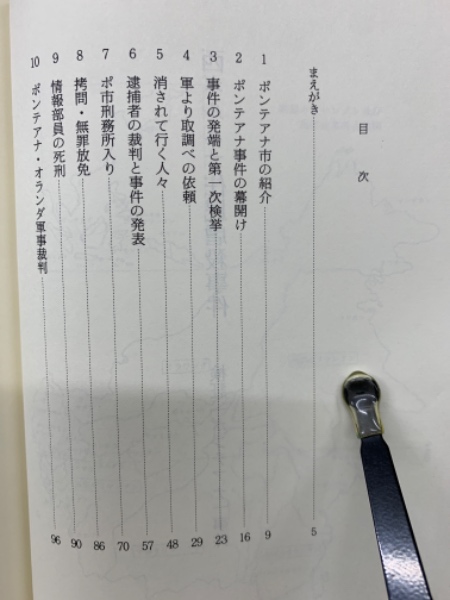 目次
まえがき 5
1 ポンテアナ市の紹介 9
2 ポンテアナ事件の幕開け 16
3 事件の発端と第一次検挙 23
4 軍より取調べの依頼 29
5 消されて行く人々 48
6 逮捕者の裁判と事件の発表 57
7 ポ市刑務所入り 70
8 拷問・無罪放免 86
9 情報部員の死刑 90
10 ポンテアナ・オランダ軍事裁判 96